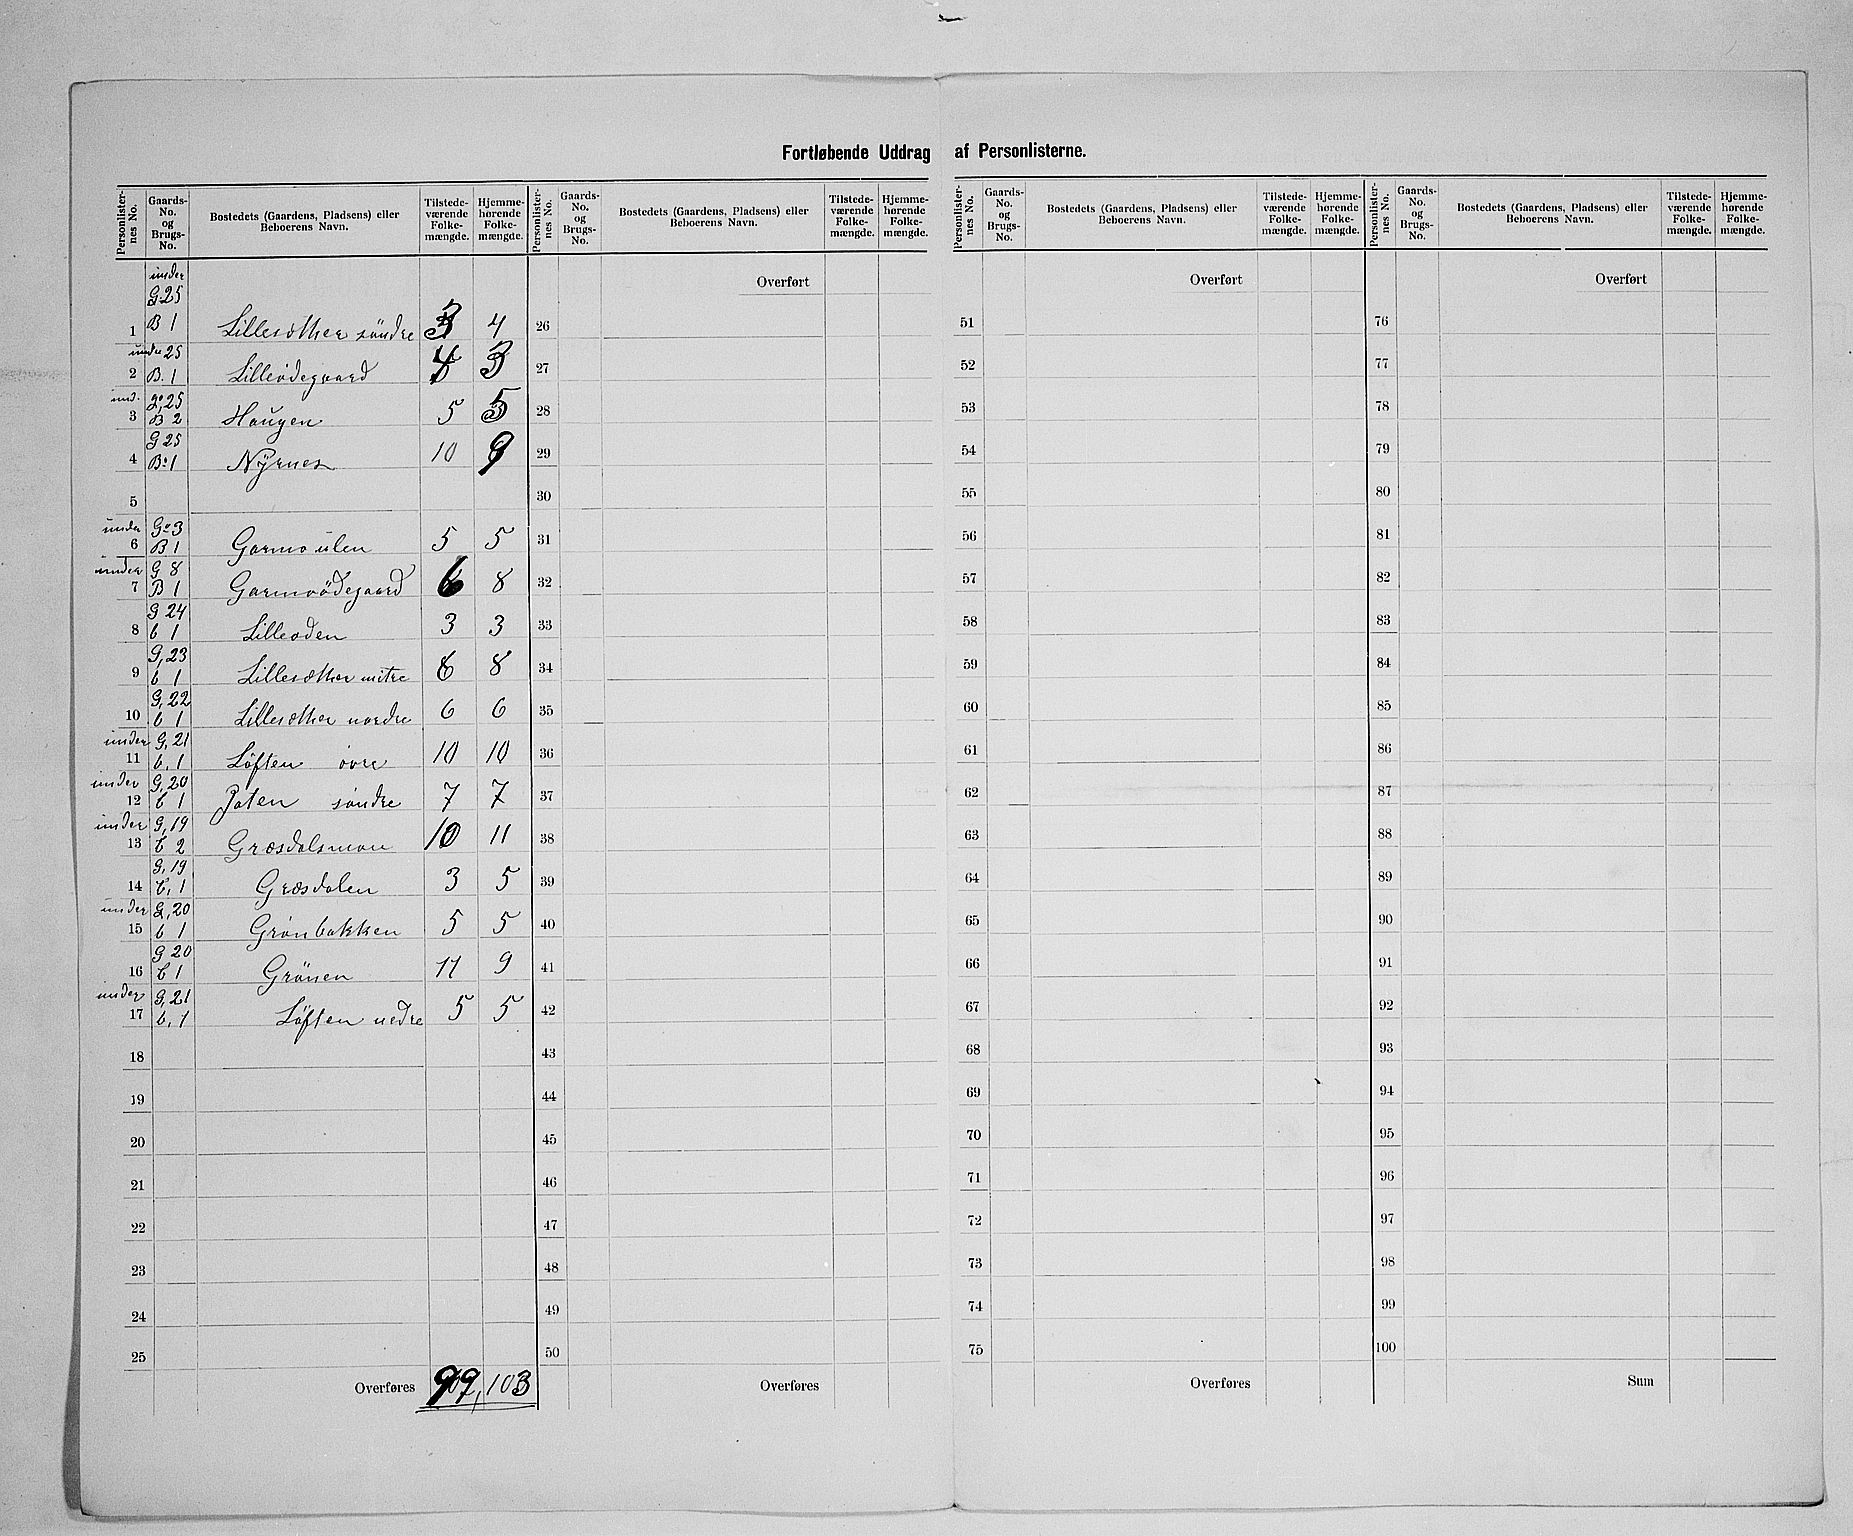 Fortløbende Uddrag af Personlisterne.
Personlister-nes No. | Gaards-No. og Brugs-No. | Bostedets (Gaardens, Pladsens) eller Beboerens Navn. | Tilstede-værende Folke-mængde. | Hjemme-hørende Folke-mængde.
Personlister-nes No. | Gaards-No. og Brugs-No. | Bostedets (Gaardens, Pladsens) eller Beboerens Navn. | Tilstede-værende Folke-mængde. | Hjemme-hørende Folke-mængde.
Personlister-nes No. | Gaards-No. og Brugs-No. | Bostedets (Gaardens, Pladsens) eller Beboerens Navn. | Tilstede-værende Folke-mængde. | Hjemme-hørende Folke-mængde.
Personlister-nes No. | Gaards-No. og Brugs-No. | Bostedets (Gaardens, Pladsens) eller Beboerens Navn. | Tilstede-værende Folke-mængde. | Hjemme-hørende Folke-mængde.
under
G 25
1 B 1 Lillesæther söndre 3 4
under 25
2 B. 1 Lilleödegaard 4 3
und. G, 25
3 B 2 Haugen 5 5
G 25
4 B. 1 Nÿrnes 10 9
5
under G. 3
6 B 1 Garmo ulen 5 5
under G 8
7 B 1 Garmoödegaard 6 8
G 24
8 b 1 Lilleoden 3 3
G, 23
9 b 1 Lillesæther mitre 6 8
G, 22
10 b 1 Lillesæther nordre 6 6
under G, 21
11 b. 1 Løften övre 10 10
under G, 20
12 b 1 Joten söndre 7 7
under G, 19
13 b 2 Græsdalsmoen 10 11
G, 19
14 b, 1 Græsdalen 3 5
under G, 20
15 b 1 Grönbakken 5 5
G 20
16 b 1 Grönen 11 9
under G, 21
17 b, 1 Løften nedre 5 5
18
19
20
21
22
23
24
25
Overføres 99, 103
Overført
26
27
28
29
30
31
32
33
34
35
36
37
38
39
40
41
42
43
44
45
46
47
48
49
50
Overføres
Overført
51
52
53
54
55
56
57
58
59
60
61
62
63
64
65
66
67
68
69
70
71
72
73
74
75
Overføres
Overført
76
77
78
79
80
81
82
83
84
85
86
87
88
89
90
91
92
93
94
95
96
97
98
99
100
Sum